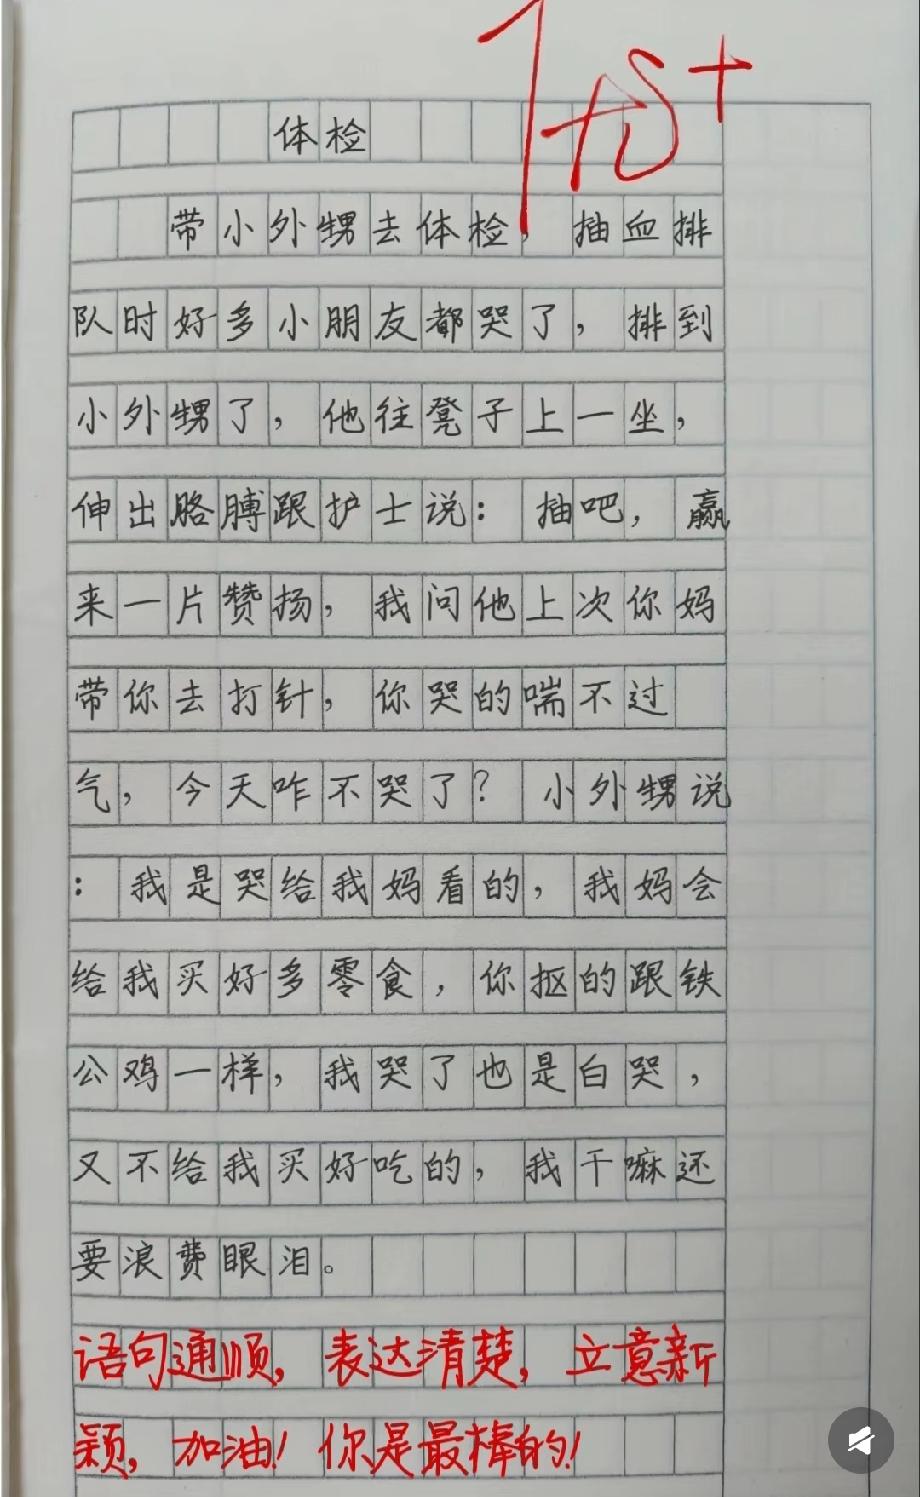 体检
带小外甥去体检，抽血排
队时好多小朋友都哭了，排到
小外甥了，他往凳子上一坐，
伸出胳膊跟护士说：抽吧，赢
来一片赞扬，我问他上次你妈
带你去打针，你哭的喘不过
气，今天咋不哭了？小外甥说
：我是哭给我妈看的，我妈会
给我买好多零食，你抠的跟铁
公鸡一样，我哭了也是白哭，
又不给我买好吃的，我干嘛还
要浪费眼泪。
语句通顺，表达清楚，立意新
颖，加油！你是最棒的！